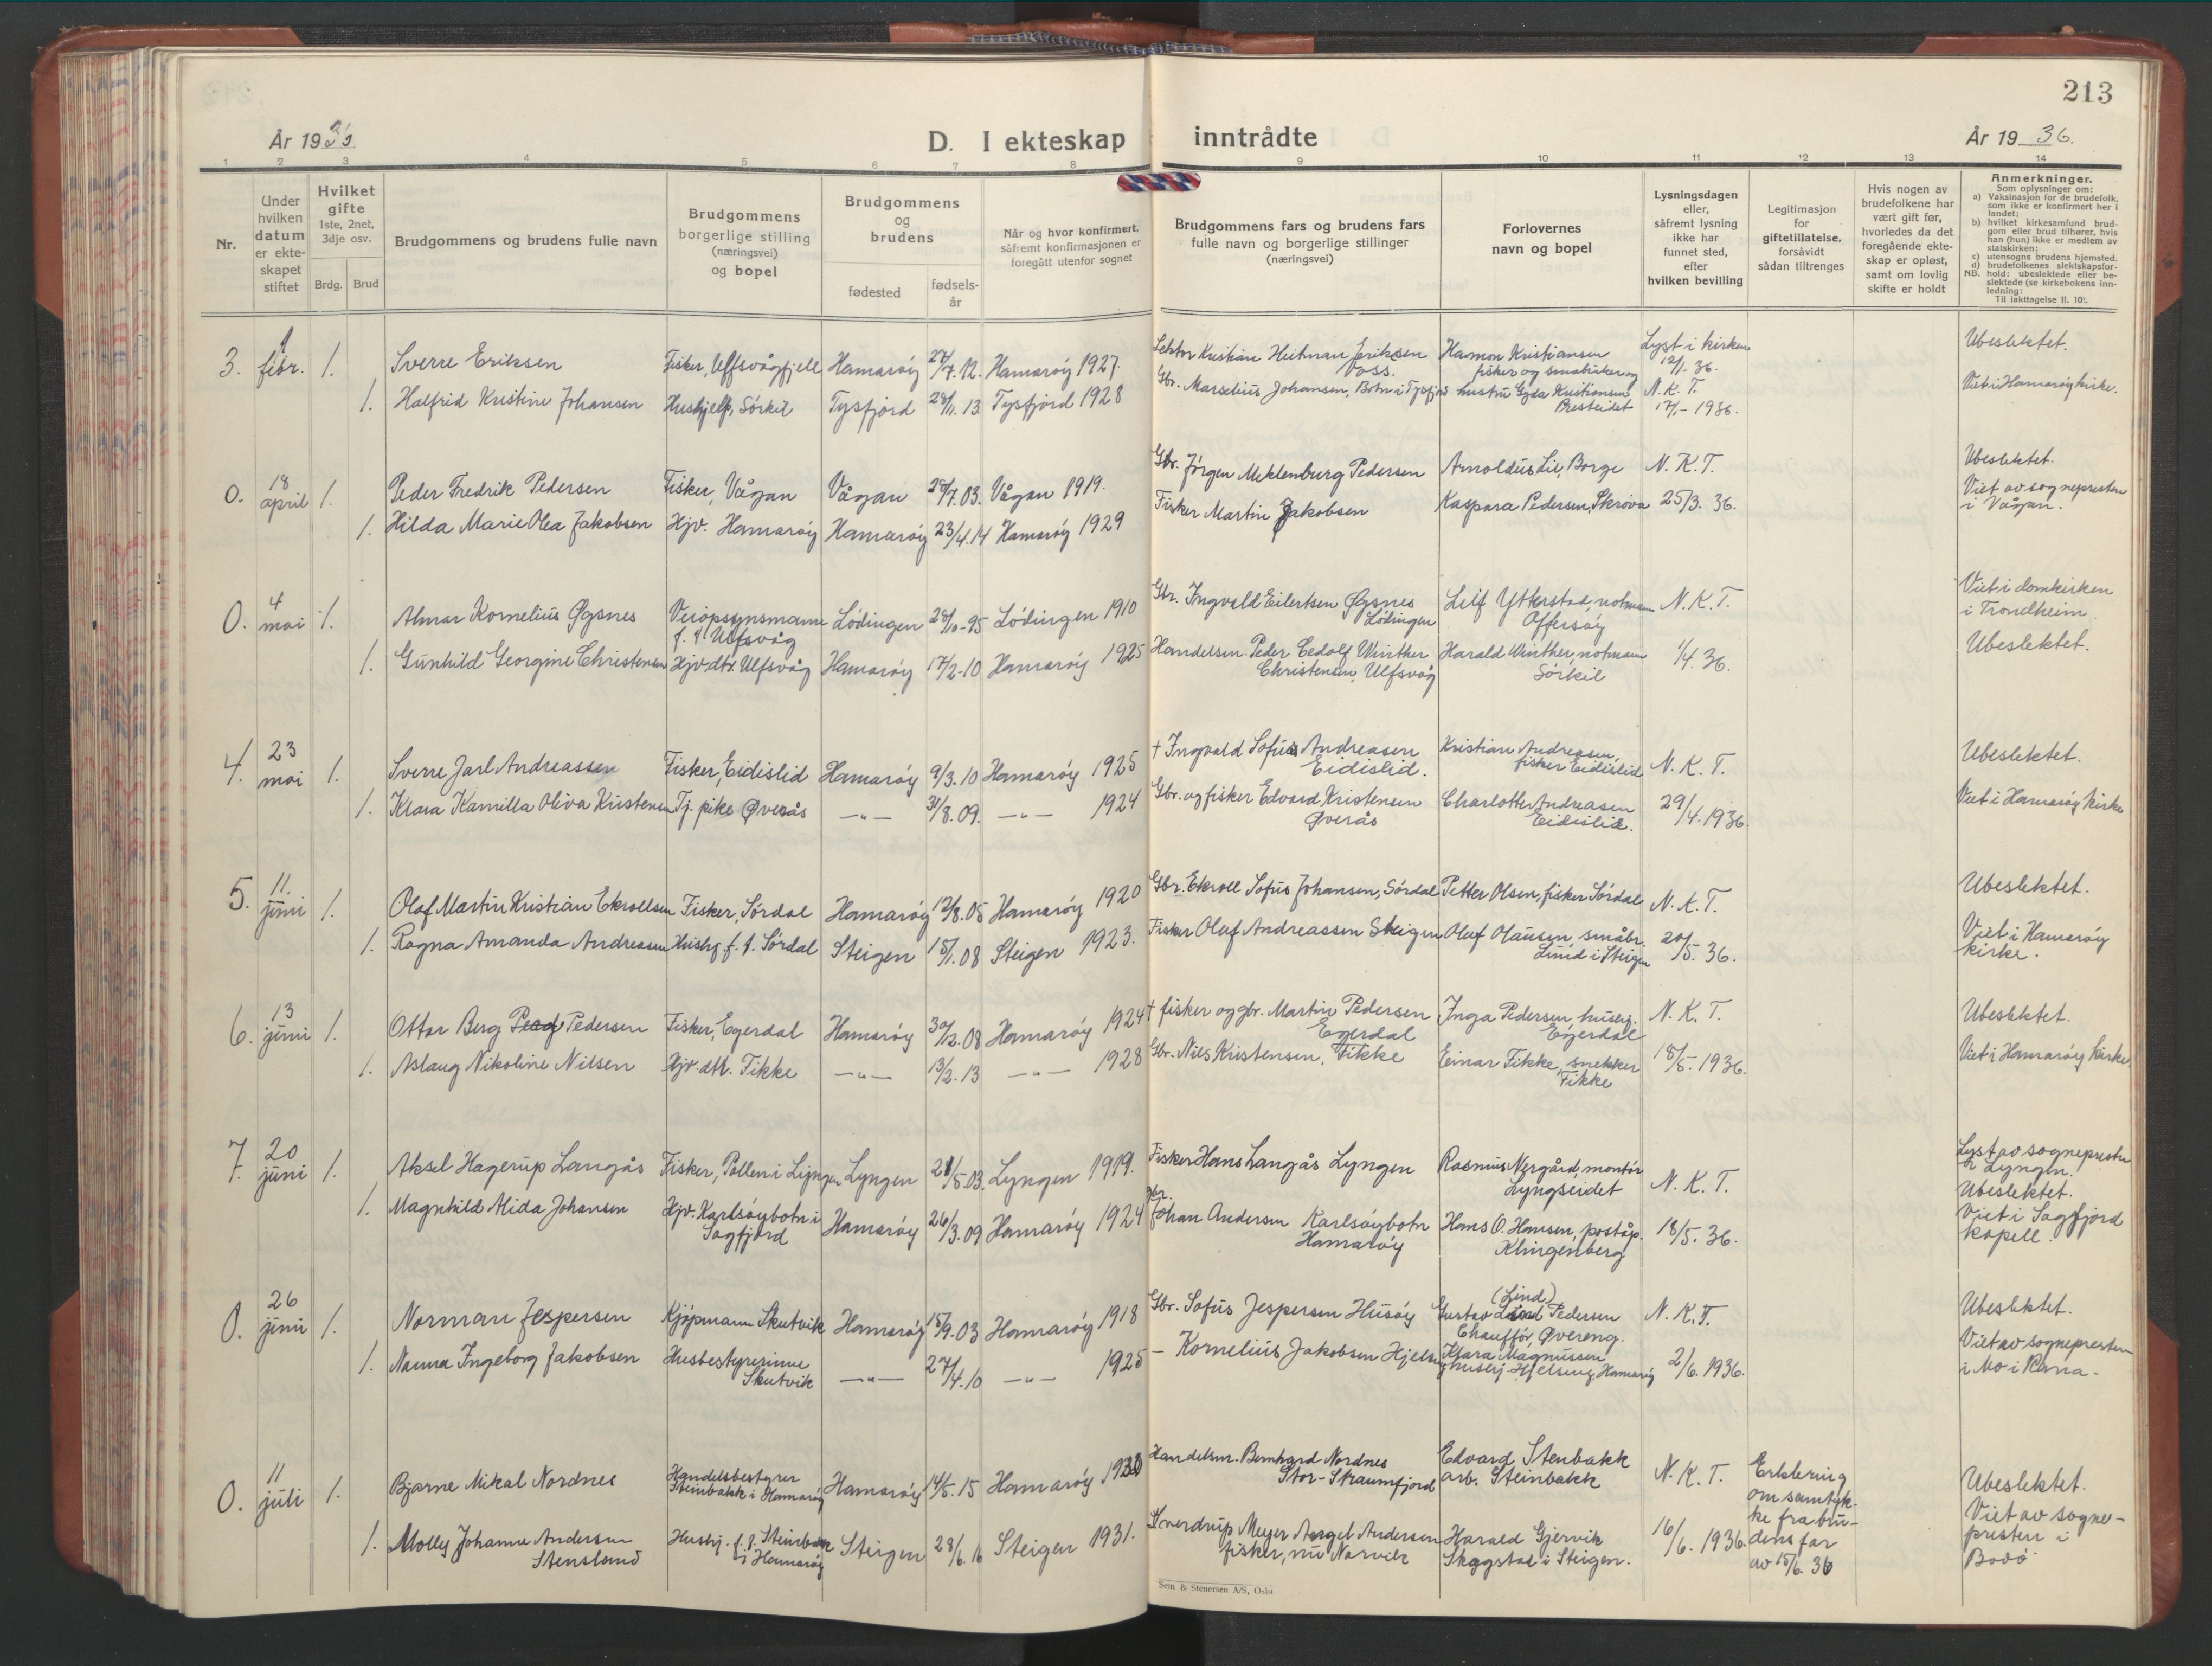 213
År 1936
D. I ekteskap inntrådte
År 1936.
1 2 3 4 5 6 7 8 9 10 11 12 13 14
Nr.
Under hvilken datum er ekteskapet stiftet
Hvilket gifte 1ste, 2net, 3dje osv.
Brdg. Brud
Brudgommens og brudens fulle navn
Brudgommens borgerlige stilling (næringsvei) og bopel
Brudgommens og brudens
fødested
fødselsår
Når og hvor konfirmert, såfremt konfirmasjonen er foregått utenfor sognet
Brudgommens fars og brudens fars fulle navn og borgerlige stillinger (næringsvei)
Forlovernes navn og bopel
Lysningsdagen eller, såfremt lysning ikke har funnet sted, efter hvilken bevilling
Legitimasjon for giftetillatelse, forsåvidt sådan tiltrenges
Hvis nogen av brudefolkene har vært gift før, hvorledes da det foregående ekteskap er opløst, samt om lovlig skifte er holdt
Anmerkninger.
Som oplysninger om:
a) Vaksinasjon for de brudefolk, som ikke er konfirmert her i landet;
b) hvilket kirkesamfund brudgom eller brud tilhører, hvis han (hun) ikke er medlem av statskirken;
c) utensogns brudens hjemsted.
d) brudefolkenes slektskapsforhold: ubeslektede eller beslektede (se kirkebokens innledning:
NB. Til iakttagelse II. 10).
3. 1 febr. 1. Sverre Eriksen Fisker, Ulfsvågfjell Hamarøy 27/7.12. Hamarøy 1927. Lektor Kristian Heitman Eriksen Voss. Hamon Kristiansen fisker og småbruker og Lyst i kirken 12/1-36. Ubeslektet.
1. Halfrid Kristine Johansen Hushjelp, Sørkil Tysfjord 28/11.13. Tysfjord 1928 Gbr. Marselius Johansen, Botn i Tysfjord hustru Gyda Kristiansen Presteidet N.K.T. 17/1-1936. Viet i Hamarøy kirke.
0. 18 april 1. Peder Fredrik Pedersen Fisker, Vågan Vågan 28/7.03. Vågan 1919. Gbr. Jørgen Meklenburg Pedersen Arnoldus Lie, Borge N.K.T. Ubeslektet.
1. Hilda Marie Olea Jakobsen Hjv. Hamarøy Hamarøy 23/4.14 Hamarøy 1929 Fisker Martin Jakobsen Kaspara Pedersen, Skrova 25/3.36. Viet av sognepresten i Vågan.
0. 4 mai 1. Almar Kornelius Øgsnes Veiopsynsmann f. t. Ulfsvåg Lødingen 28/10-95 Lødingen 1910 Gbr. Ingvald Eilertsen Øgsnes Lødingen Leif Ytterstad, notmann Offersøy N.K.T. Viet i domkirken i Trondheim
1. Gunhild Georgine Christensen Hjv. dtr. Ulfsvåg Hamarøy 17/2-10 Hamarøy 1925 Handelsm. Peder Cedolf Winther Christensen, Ulfsvåg Harald Winther, notmann Sørkil 1/4.36. Ubeslektet.
4. 23 mai 1. Sverre Jarl Andreassen Fisker, Eidislid Hamarøy 9/3.10 Hamarøy 1925 † Ingvald Sofus Andreasen Eidislid. Kristian Andreasen, fisker Eidislid N.K.T. Ubeslektet.
1. Klara Kamilla Oliva Kristensen Tj. pike Øverås —"— 31/8.09. —"— 1924 Gbr. og fisker Edvard Kristensen Øverås Charlotte Andreasen Eidislid. 29/4.1936. Viet i Hamarøy kirke
5. 11. juni 1. Olaf Martin Kristian Ekrollsen Fisker, Sørdal Hamarøy 12/8.05 Hamarøy 1920 Gbr. Ekroll Sofus Johansen, Sørdal Petter Olsen, fisker Sørdal N.K.T. Ubeslektet.
1. Ragna Amanda Andreasen Hushj. f. t. Sørdal Steigen 15/1.08 Steigen 1923. Fisker Olaf Andreassen Steigen Olaf Olausen småbr. Lund i Steigen 20/5.36. Viet i Hamarøy kirke.
6. 13 juni 1. Ottar Berg Pedersen Fisker, Egerdal Hamarøy 30/12.08 Hamarøy 1924 † fisker og gbr. Martin Pedersen Egerdal Inga Pedersen hushj. Egerdal N.K.T. Ubeslektet.
1. Aslaug Nikoline Nilsen Hjv. dtr. Fikke —"— 13/2.13 —"— 1928 Gbr. Nils Kristensen, Fikke Einar Fikke, snekker Fikke 18/5-1936. Viet i Hamarøy kirke.
7. 20 juni 1. Aksel Hagerup Langås Fisker, Pollen i Lyngen Lyngen 21/5.03. Lyngen 1919. Fisker Hans Langås Lyngen Rasmus Nergård, montør Lyngseidet N.K.T. Lyst av sognepresten i Lyngen. Ubeslektet.
1. Magnhild Alida Johansen Hjv. Karlsøybotn i Sagfjord Hamarøy 26/3.09 Hamarøy 1924 gbr. Johan Andersen Karlsøybotn Hamarøy Hans O. Hansen, poståp. Klingenberg 18/5.36. Viet i Sagfjord kapell.
0. 26 juni 1. Norman Jespersen Kjøpmann Skutvik Hamarøy 15/9.03 Hamarøy 1918 Gbr. Sofus Jespersen Husøy Gustav Lind (Lind) Pedersen Chauffør, Øvereng. N.K.T. Ubeslektet.
1. Nanna Ingeborg Jakobsen Husbestyrerinne Skutvik —"— 27/4.10 —"— 1925 — Kornelius Jakobsen Hjelsing Klara Magnussen hushj. Hjelsing, Hamarøy 2/6.1936. Viet av sognepresten i Mo i Rana.
0. 11 juli 1. Bjarne Mikal Nordnes Handelsbestyrer Steinbakk i Hamarøy Hamarøy 14/5.15 Hamarøy 1930 Handelsm. Bernhard Nordnes Stor-Straumfjord Edvard Stenbakk arb. Steinbakk N.K.T. Erklæring om samtykke fra brudens far av 15/6.36 Ubeslektet.
1. Molly Johanne Andersen Stensland Hushj. f. t. Steinbakk i Hamarøy Steigen 28/6.16 Steigen 1931. Sverdrup Meyer Angel Andersen fisker, nu Narvik Harald Gjervik Skagstad i Steigen. 16/6.1936. Viet av sognepresten i Bodø
Sem & Stenersen A/S, Oslo